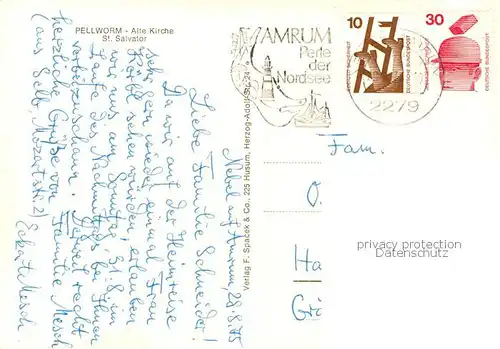 PELLWORM - Alte Kirche
St. Salvator
AMRUM
Perle
der
Nordsee
2279
10
DEUTSCHE BUNDESPOST
30
DEUTSCHE BUNDESPOST
Verlag F. Spacek & Co., 225 Husum, Herzog-Adolf-Str. 24
Nebel auf Amrum, 28.8.75
Liebe Familie Schneider!
Da wir auf der Heimreise
sehr gern wieder einmal Frau
sehen würden, erlauben
wir uns am Sonntag, 31.8. im
Laufe des Nachmittags bei Ihnen
vorbeizuschauen. Derweil recht
herzliche Grüße von Familie Mesch
(aus Selb, Mozartstr. 2)
Fam.
O
Ha
Gr
privacy protection
Datenschutz